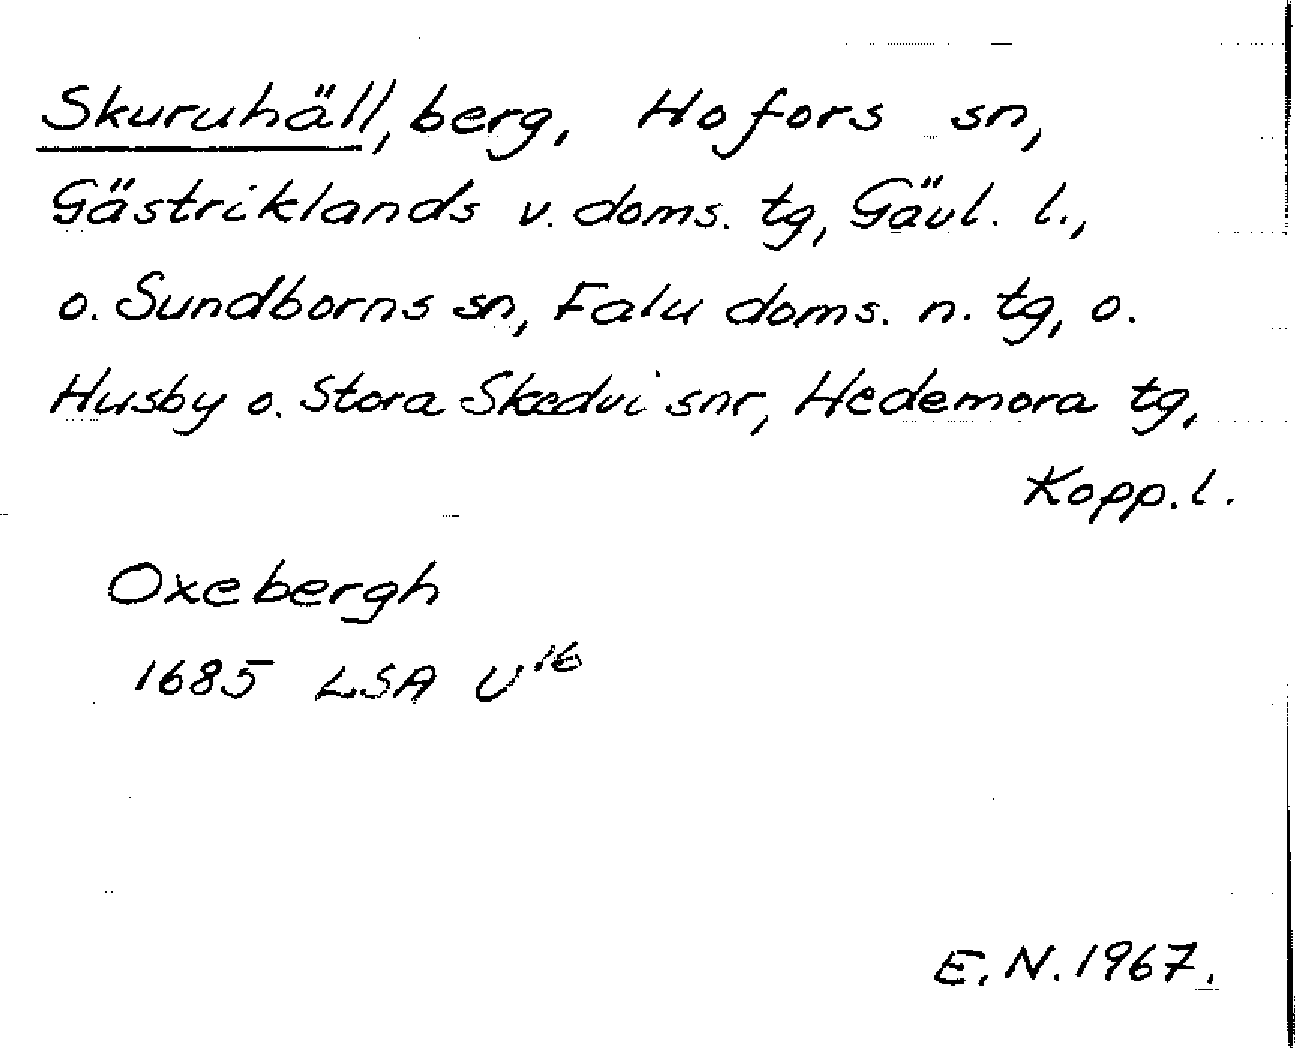 Skuruhäll, berg, Hofors sn,
Gästriklands v. doms. tg, Gävl. l.,
o. Sundborns sn, Falu doms. n. tg, o.
Husby o. Stora Skedvi snr, Hedemora tg,
Kopp. l.
Oxebergh
1685 LSA U16
E. N. 1967.